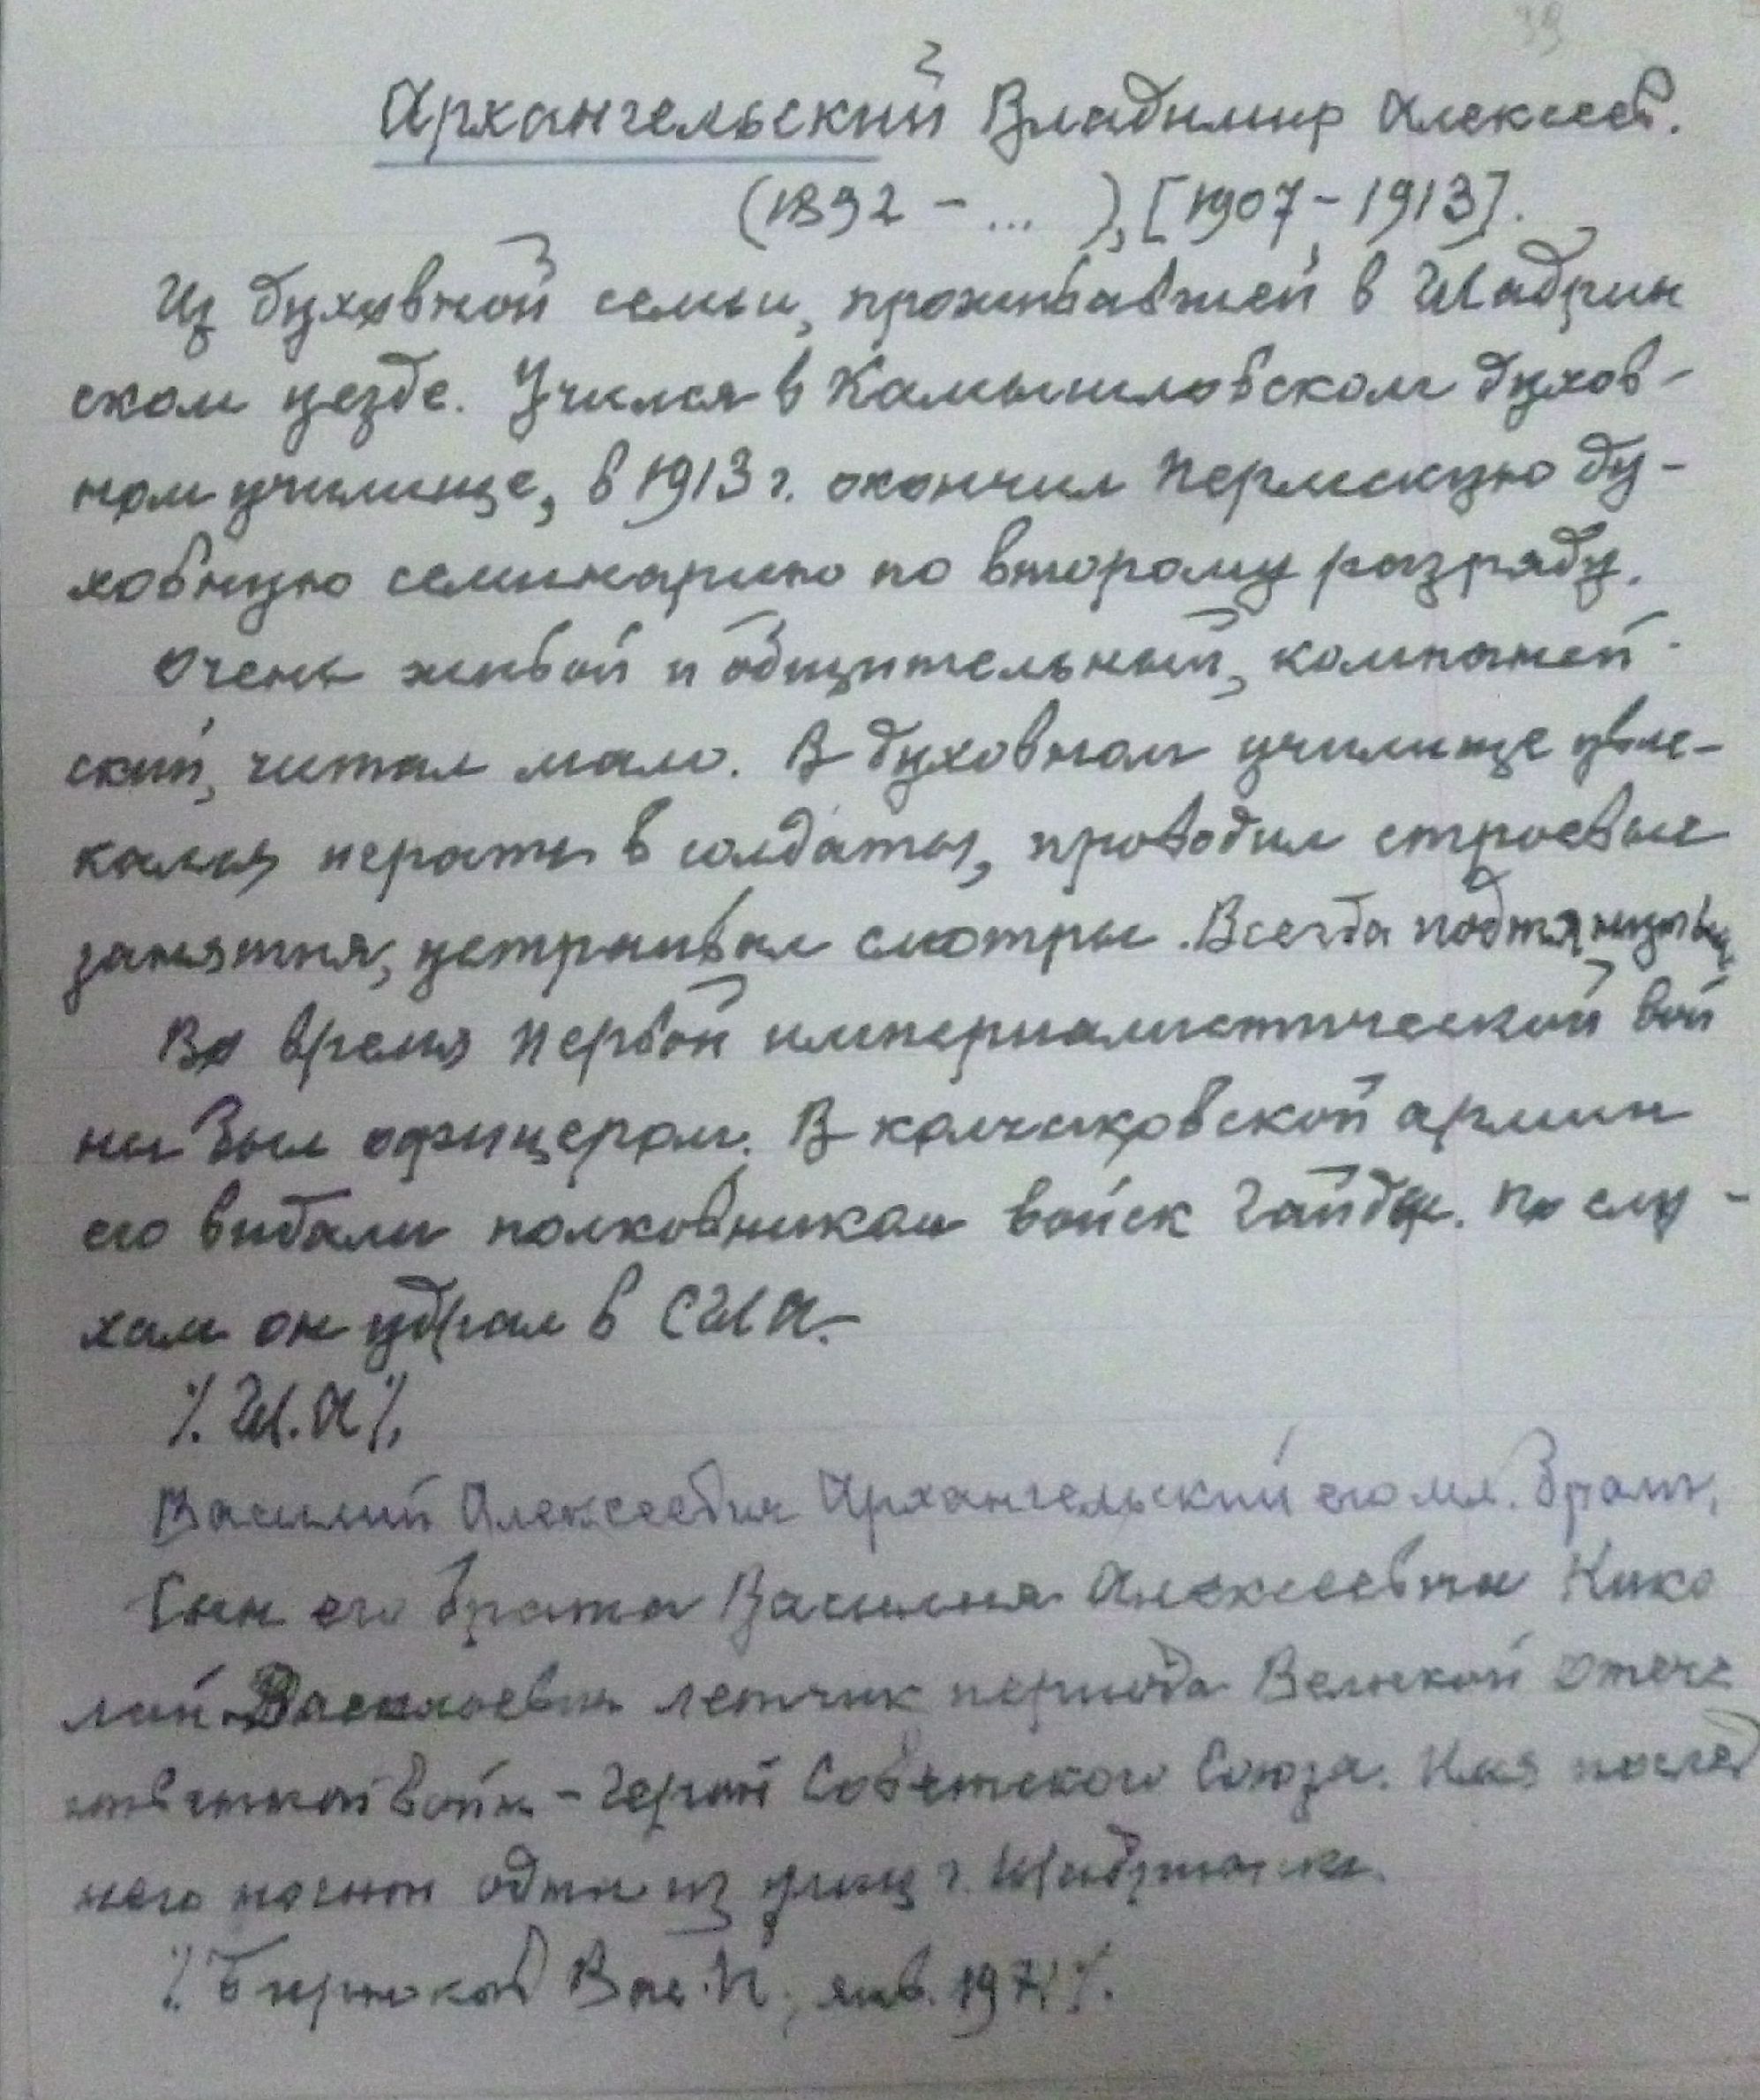 39
Архангельский Владимир Алексеев.
(1892 - ... ), [1907 - 1913].
Из духовной семьи, проживавшей в Шадрин
ском уезде. Учился в Камышловском духов-
ном училище, в 1913 г. окончил Пермскую ду-
ховную семинарию по второму разряду.
Очень живой и общительный, компаней
ский, читал мало. В духовном училище увле-
кался играть в солдаты, проводил строевые
занятия, устраивал смотры. Всегда подтянутый
Во время первой империалистической вой
ны был офицером. В колчаковской армии
его видали полковником войск Гайды. По слу-
хам он удрал в США.-
% Ш. А %
Василий Алексеевич Архангельский его мл. брат.
Сын его брата Василия Алексеевича Нико
лай Васильевич летчик периода Великой Отече
ственной войны - Герой Советского Союза. Имя послед
него носит одна из улиц г. Шадринска.
% Бирюков Вас. П., янв. 1971 %.